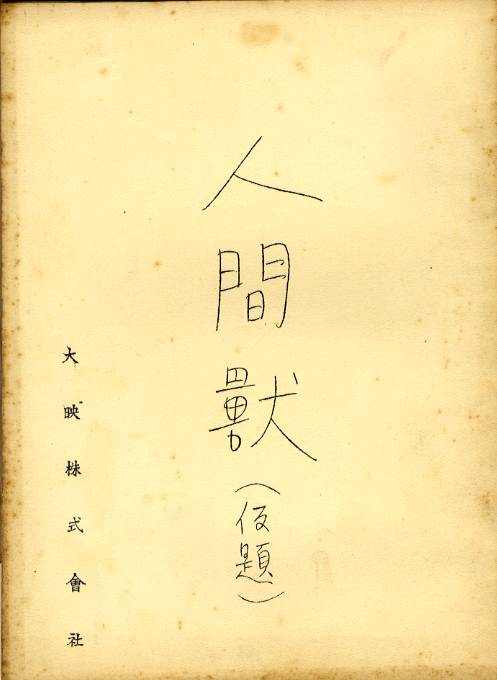 人間獣（仮題）
大映株式會社